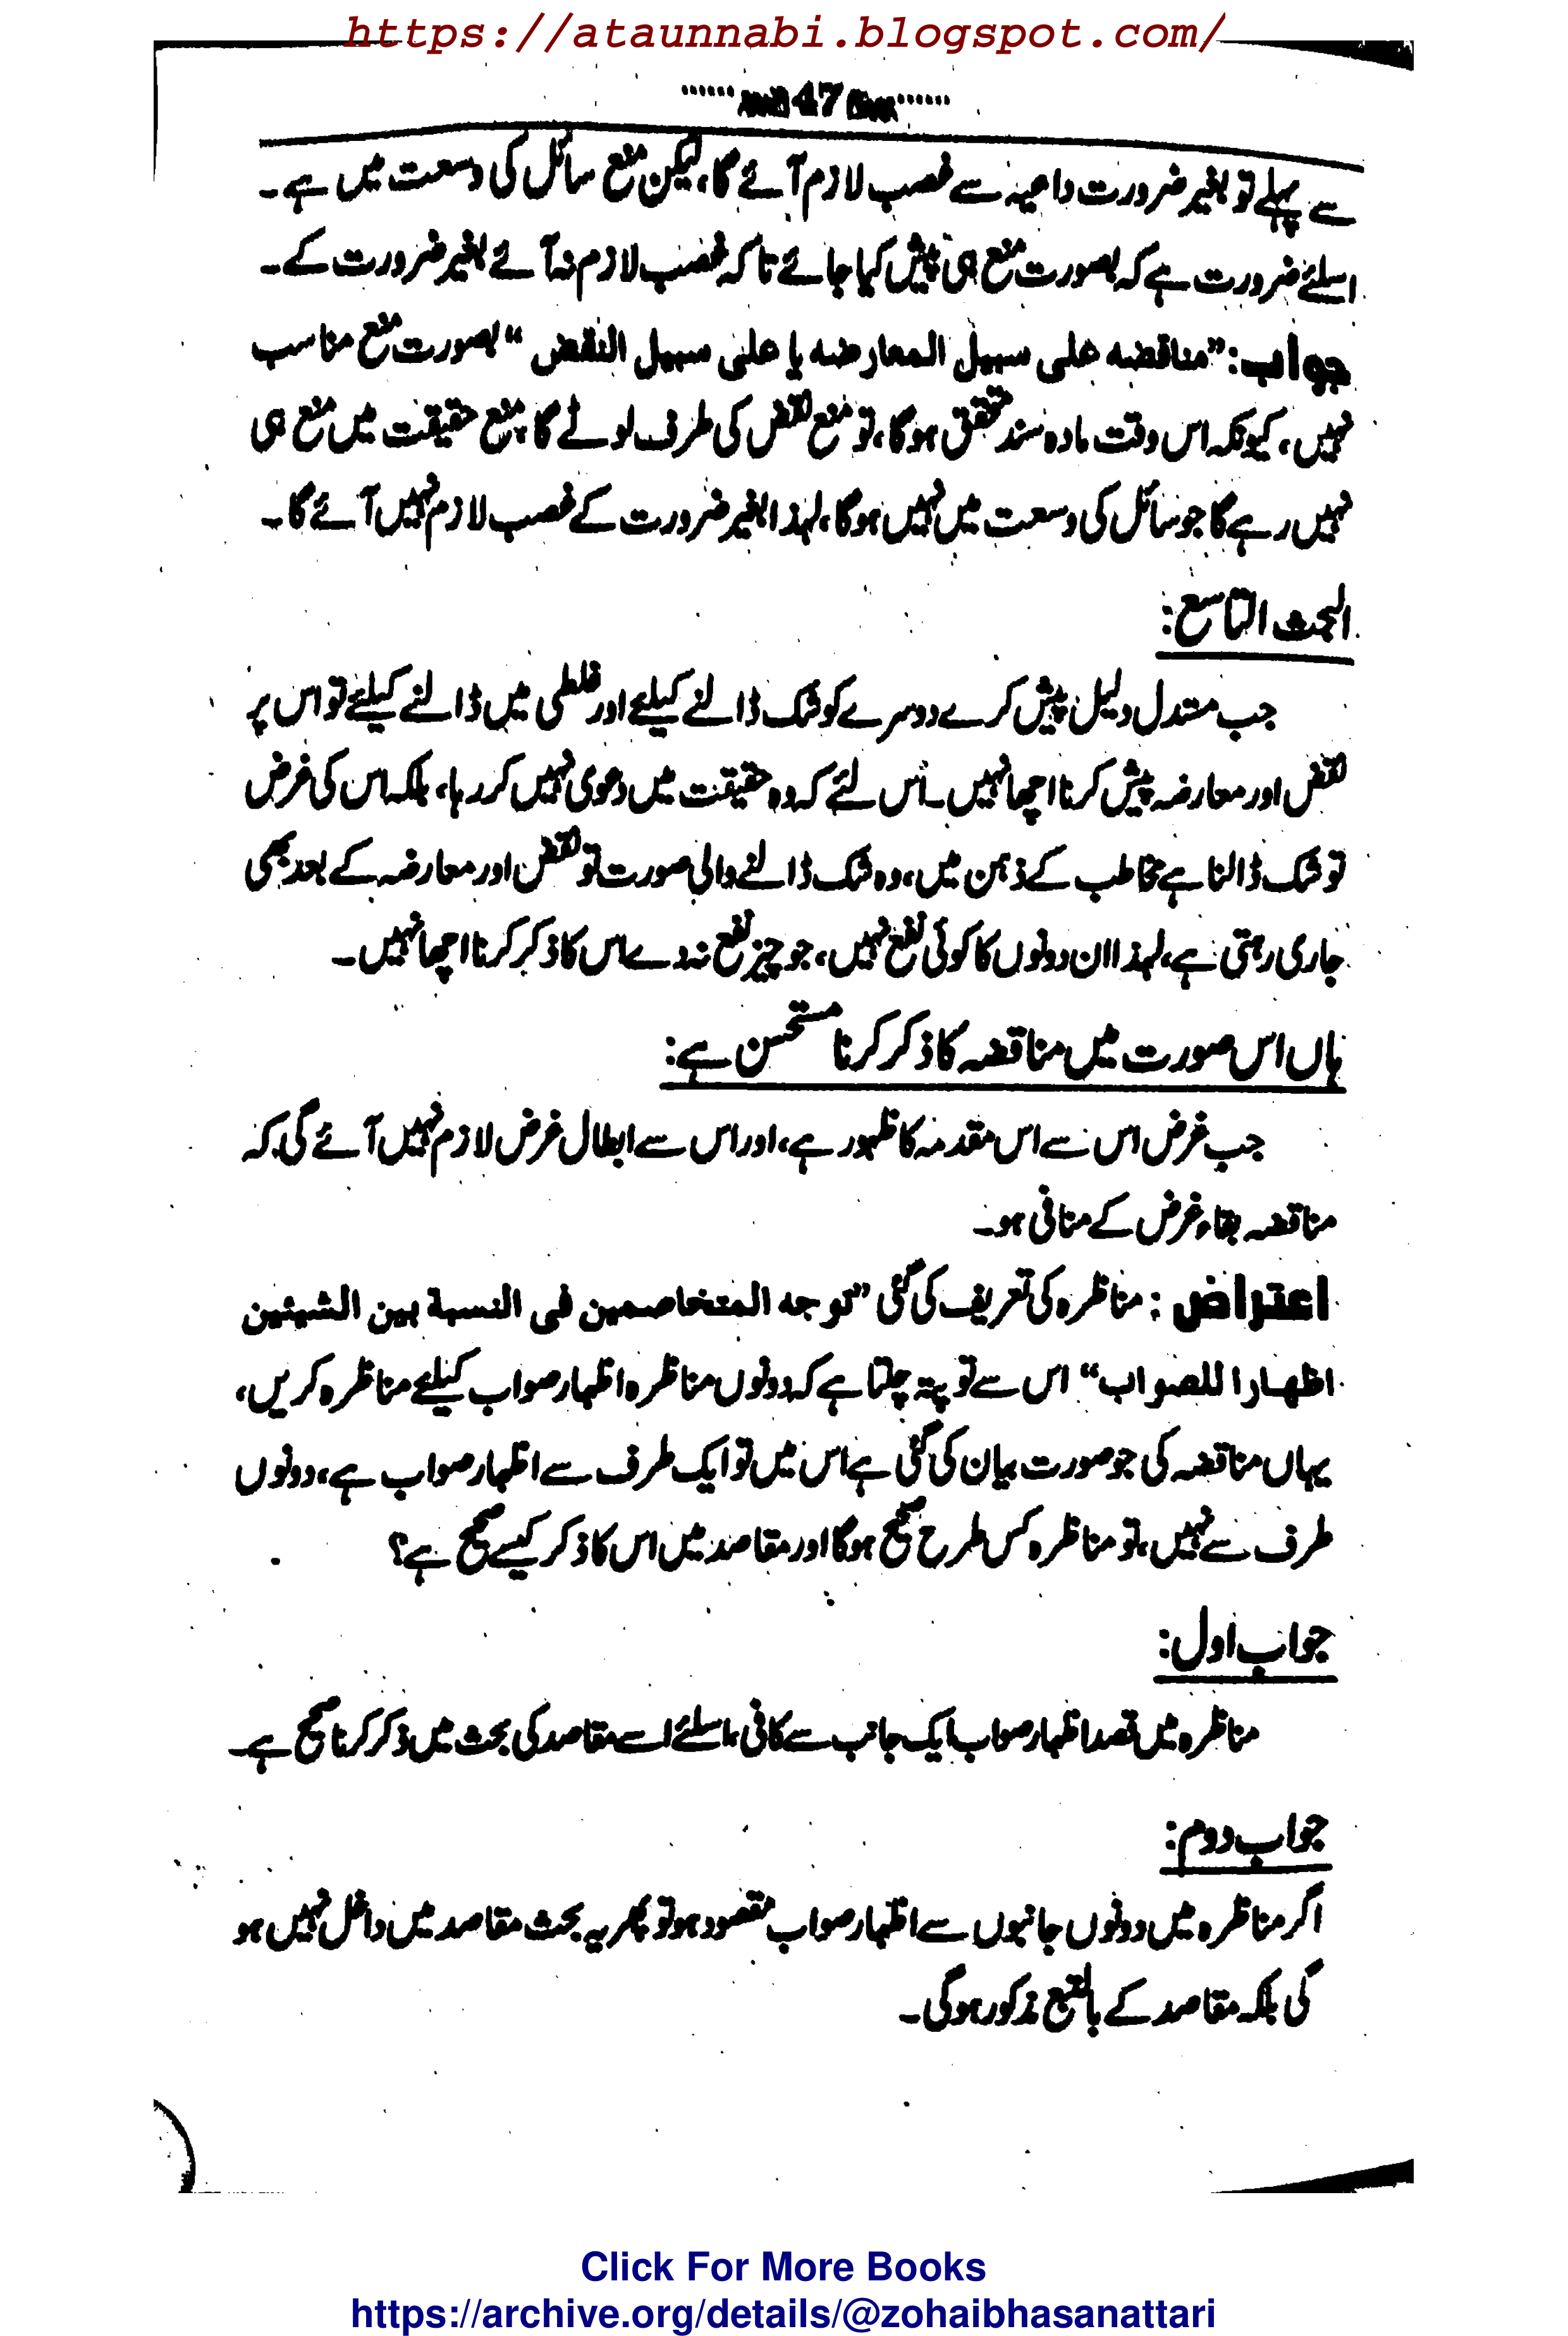 https://ataunnabi.blogspot.com/
47
سے پہلے تو بغیر ضرورت داعیہ سے غصب لازم آئے گا، لیکن منع سائل کی وسعت میں ہے۔
اسلئے ضرورت ہے کہ بصورت منع ہی پیش کیا جائے تاکہ غصب لازم نہ آئے بغیر ضرورت کے۔
جواب: ”مناقضہ علی سبیل المعارضہ یا علی سبیل النقض“ بصورت منع مناسب
نہیں، کیونکہ اس وقت مادہ سند متحقق ہوگا، تو منع نقض کی طرف لوٹے گا، منع حقیقت میں منع ہی
نہیں رہے گا جو سائل کی وسعت میں نہیں ہوگا، لہذا بغیر ضرورت کے غصب لازم نہیں آئے گا۔
البحث التاسع:
جب مستدل دلیل پیش کرے دوسرے کو شک ڈالنے کیلئے اور غلطی میں ڈالنے کیلئے تو اس پر
نقض اور معارضہ پیش کرنا اچھا نہیں۔ اس لئے کہ وہ حقیقت میں دعوی نہیں کر رہا، بلکہ اس کی غرض
تو شک ڈالنا ہے مخاطب کے ذہن میں، وہ شک ڈالنے والی صورت تو نقض اور معارضہ کے بعد بھی
جاری رہتی ہے، لہذا ان دونوں کا کوئی نفع نہیں، جو چیز نفع نہ دے اس کا ذکر کرنا اچھا نہیں۔
ہاں اس صورت میں مناقضہ کا ذکر کرنا مستحسن ہے:
جب غرض اس سے اس مقدمہ کا ظہور ہے، اور اس سے ابطال غرض لازم نہیں آئے گی کہ
مناقضہ بقاء غرض کے منافی ہو۔
اعتراض: مناظرہ کی تعریف کی گئی ”توجه المتخاصمين فى النسبة بين الشيئين
اظهارا للصواب“ اس سے تو پتہ چلتا ہے کہ دونوں مناظرہ اظہار صواب کیلئے مناظرہ کریں،
یہاں مناقضہ کی جو صورت بیان کی گئی ہے اس میں تو ایک طرف سے اظہار صواب ہے، دونوں
طرف سے نہیں، تو مناظرہ کس طرح صحیح ہوگا اور مقاصد میں اس کا ذکر کیسے صحیح ہے؟
جواب اول:
مناظرہ میں قصد اظہار صواب ایک جانب سے کافی، اسلئے اسے مقاصد کی بحث میں ذکر کرنا صحیح ہے۔
جواب دوم:
اگر مناظرہ میں دونوں جانبوں سے اظہار صواب مقصود ہو تو پھر یہ بحث مقاصد میں داخل نہیں ہو
گی بلکہ مقاصد کے بالتبع مذکور ہوگی۔
Click For More Books
https://archive.org/details/@zohaibhasanattari